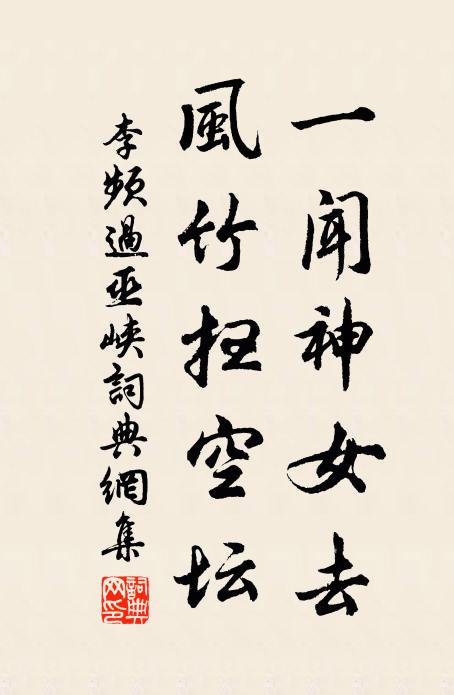 一闻神女去
風竹扫空坛
李频過巫峡詞典網集
詞典网印